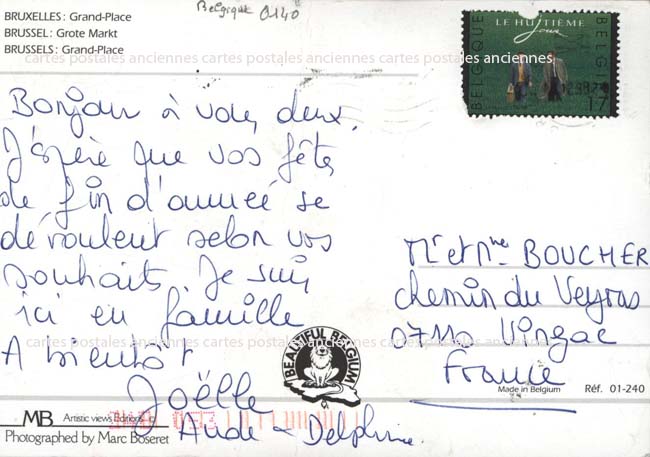 BRUXELLES: Grand-Place
BRUSSEL: Grote Markt
BRUSSELS: Grand-Place
Belgique 0140
BELGIQUE
LE HUITIÈME
Jour
BELGIË
17
cartes postales anciennes cartes postales anciennes cartes postales anciennes
Bonjour à vous deux.
J'espère que vos fêtes
de fin d'année se
déroulent selon vos
souhaits. Je suis
ici en famille
A bientôt
Joëlle
Aude - Delphine.
Mr et Mme BOUCHER
chemin du Veyras
07110 Vinzac
France
cartes postales anciennes cartes postales anciennes cartes postales anciennes
BEAUTIFUL BELGIUM
Made in Belgium
Réf. 01-240
MB Artistic views Editions
Photographed by Marc Boseret